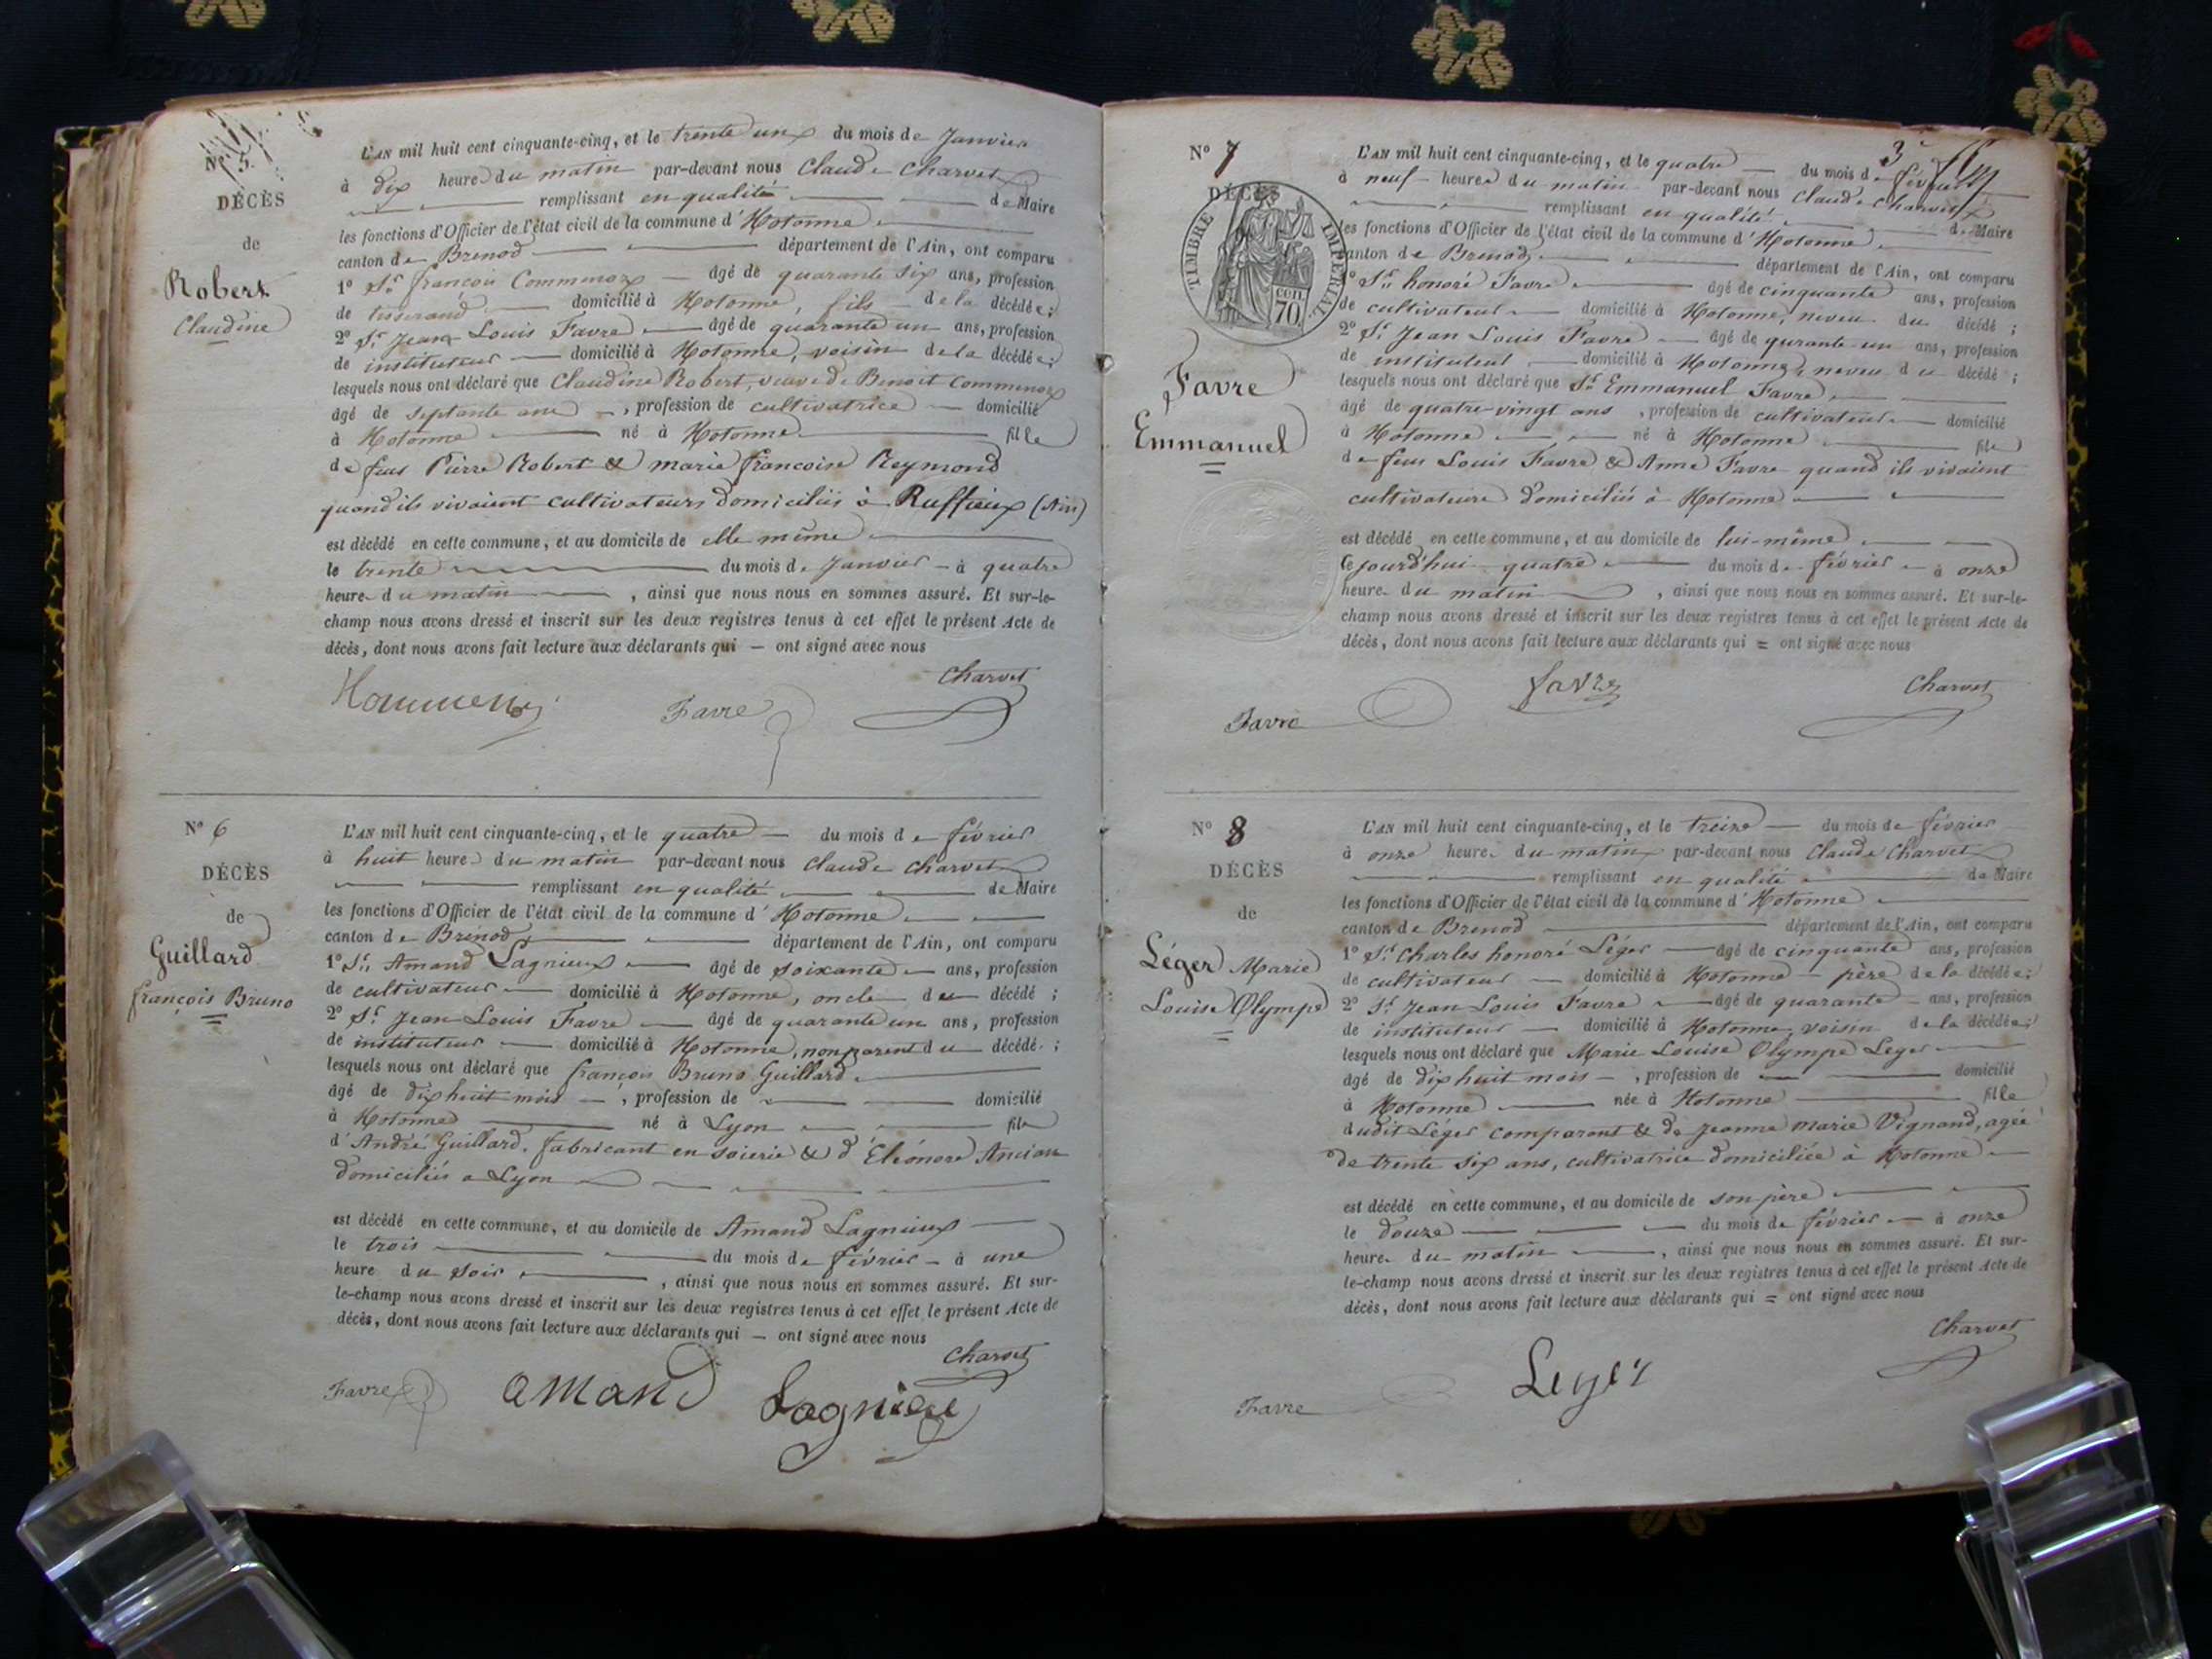 N° 5.
DÉCÈS
de
Robert
Claudine
L'AN mil huit cent cinquante-cinq, et le trente un du mois de Janvier
à dix heures du matin par-devant nous Claude Charvet
remplissant en qualité de Maire
les fonctions d'Officier de l'état civil de la commune d'Hotonne
canton de Brenod département de l'Ain, ont comparu
1° Sr. françois âgé de quarante six ans, profession
de tisserand domicilié à Hotonne, fils de la décédée;
2° Sr. Jean Louis Favre âgé de quarante un ans, profession
de instituteur domicilié à Hotonne, voisin de la décédée;
lesquels nous ont déclaré que Claudine Robert, veuve de Benoit
âgé de septante ans, profession de cultivatrice domicilié
à Hotonne né à Hotonne fille
de feus Pierre Robert & marie françoise Reymond
quand ils vivaient cultivateurs domiciliés à Ruffieux (Ain)
est décédé en cette commune, et au domicile de elle même
le trente du mois de Janvier à quatre
heure du matin, ainsi que nous nous en sommes assuré. Et sur-le-
champ nous avons dressé et inscrit sur les deux registres tenus à cet effet le présent Acte de
décès, dont nous avons fait lecture aux déclarants qui — ont signé avec nous
Charvet
Favre
N° 6
DÉCÈS
de
Guillard
françois Bruno
L'AN mil huit cent cinquante-cinq, et le quatre du mois de février
à huit heures du matin par-devant nous Claude Charvet
remplissant en qualité de Maire
les fonctions d'Officier de l'état civil de la commune d'Hotonne
canton de Brénod département de l'Ain, ont comparu
1° Sr. Amand Lagnieux âgé de soixante ans, profession
de cultivateur domicilié à Hotonne, oncle du décédé;
2° Sr. Jean Louis Favre âgé de quarante un ans, profession
de instituteur domicilié à Hotonne, non parent du décédé;
lesquels nous ont déclaré que françois Bruno Guillard
âgé de dix huit mois, profession de domicilié
à Hotonne né à Lyon fils
d'André Guillard, fabricant en soierie & d'Eléonore
domiciliés a Lyon
est décédé en cette commune, et au domicile de Amand Lagnieux
le trois du mois de février à une
heure du soir, ainsi que nous nous en sommes assuré. Et sur-
le-champ nous avons dressé et inscrit sur les deux registres tenus à cet effet le présent Acte de
décès, dont nous avons fait lecture aux déclarants qui — ont signé avec nous
Charvet
Favre amand
N° 7
3e
DÉCÈS
TIMBRE IMPÉRIAL
CEN.
70.
Favre
Emmanuel
L'AN mil huit cent cinquante-cinq, et le quatre du mois de février
à neuf heures du matin par-devant nous Claude Charvet
remplissant en qualité de Maire
les fonctions d'Officier de l'état civil de la commune d'Hotonne
canton de Brenod département de l'Ain, ont comparu
1° Sr. honoré Favre âgé de cinquante ans, profession
de cultivateur domicilié à Hotonne, neveu du décédé;
2° Sr. Jean Louis Favre âgé de qurante un ans, profession
de instituteur domicilié à Hotonne, neveu du décédé;
lesquels nous ont déclaré que Sr. Emmanuel Favre
âgé de quatre-vingt ans, profession de cultivateur domicilié
à Hotonne né à Hotonne fils
de feus Louis Favre & Anne Favre quand ils vivaient
cultivateurs domiciliés à Hotonne
est décédé en cette commune, et au domicile de lui-même
le jourd'hui quatre du mois de février à onze
heure du matin, ainsi que nous nous en sommes assuré. Et sur-le-
champ nous avons dressé et inscrit sur les deux registres tenus à cet effet le présent Acte de
décès, dont nous avons fait lecture aux déclarants qui = ont signé avec nous
favre Charvet
Favre
N° 8
DÉCÈS
de
Léger Marie
Louise Olympe
L'AN mil huit cent cinquante-cinq, et le treize du mois de février
à onze heure du matin par-devant nous Claude Charvet
remplissant en qualité de Maire
les fonctions d'Officier de l'état civil de la commune d'Hotonne
canton de Brenod département de l'Ain, ont comparu
1° Sr. Charles honoré Léger âgé de cinquante ans, profession
de cultivateur domicilié à Hotonne père de la décédée;
2° Sr. Jean Louis Favre âgé de quarante ans, profession
de instituteur domicilié à Hotonne, voisin de la décédée;
lesquels nous ont déclaré que Marie Louise Olympe Leger
âgé de dix huit mois, profession de domicilié
à Hotonne née à Hotonne fille
dudit Léger comparant & de Jeanne Marie Vignand, agée
de trente six ans, cultivatrice domiciliée à Hotonne
est décédé en cette commune, et au domicile de son père
le douze du mois de février à onze
heure du matin, ainsi que nous nous en sommes assuré. Et sur-
le-champ nous avons dressé et inscrit sur les deux registres tenus à cet effet le présent Acte de
décès, dont nous avons fait lecture aux déclarants qui = ont signé avec nous
Charvet
Leger
Favre